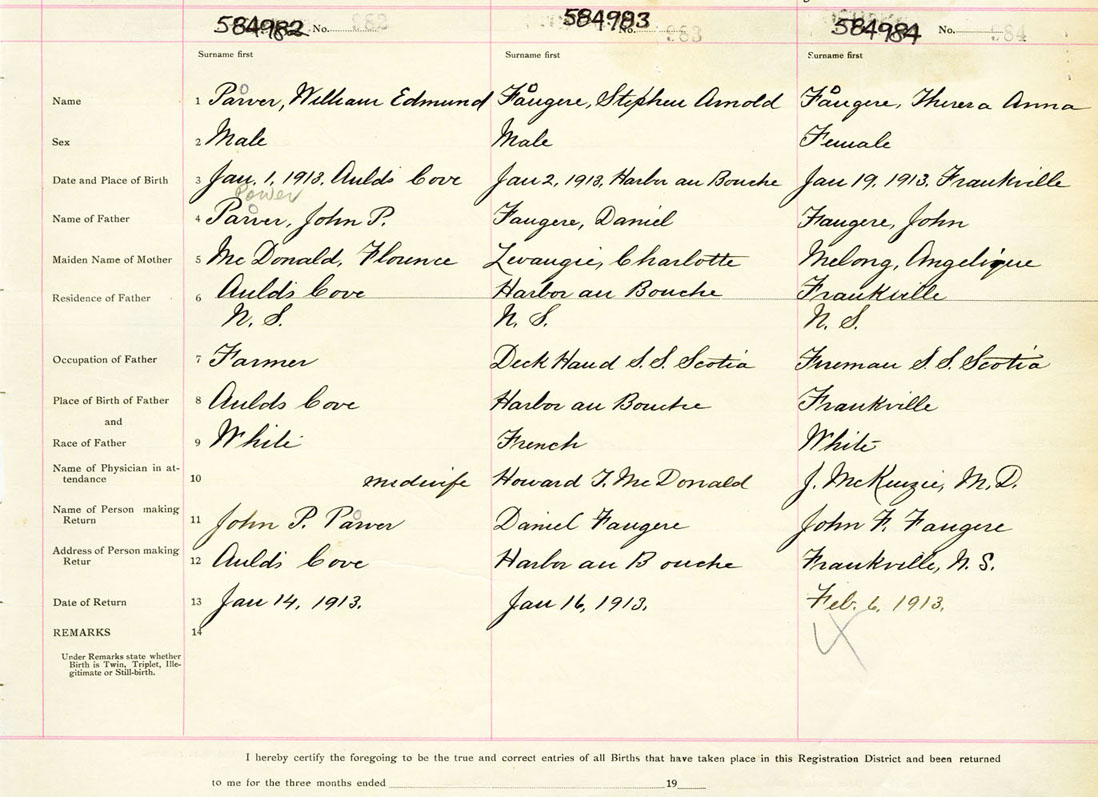 584982 No. 982 584983 No. 983 584984 No. 984
Surname first Surname first Surname first
Name 1 Parver, William Edmund Faugere, Stephen Arnold Faugere, Theresa Anna
Sex 2 Male Male Female
Date and Place of Birth 3 Jan. 1, 1913, Aulds Cove Jan 2, 1913, Harbor au Bouche Jan 19, 1913. Frankville
Power
Name of Father 4 Parver, John P. Faugere, Daniel Faugere, John
Maiden Name of Mother 5 McDonald, Florence Levangie, Charlotte Melong, Angelique
Residence of Father 6 Aulds Cove Harbor au Bouche Frankville
N. S. N. S. N. S.
Occupation of Father 7 Farmer Deck Hand S. S. Scotia Fireman S S. Scotia
Place of Birth of Father 8 Aulds Cove Harbor au Bouche Frankville
and
Race of Father 9 White French White
Name of Physician in at-
tendance 10 midwife Howard T. McDonald J. McKenzie, M.D.
Name of Person making
Return 11 John P. Parver Daniel Faugere John F. Faugere
Address of Person making
Retur 12 Aulds Cove Harbor au Bouche Frankville, N. S.
Date of Return 13 Jan 14, 1913. Jan 16, 1913. Feb. 6, 1913.
REMARKS 14
Under Remarks state whether
Birth is Twin, Triplet, Ille-
gitimate or Still-birth.
I hereby certify the foregoing to be the true and correct entries of all Births that have taken place in this Registration District and been returned
to me for the three months ended 19